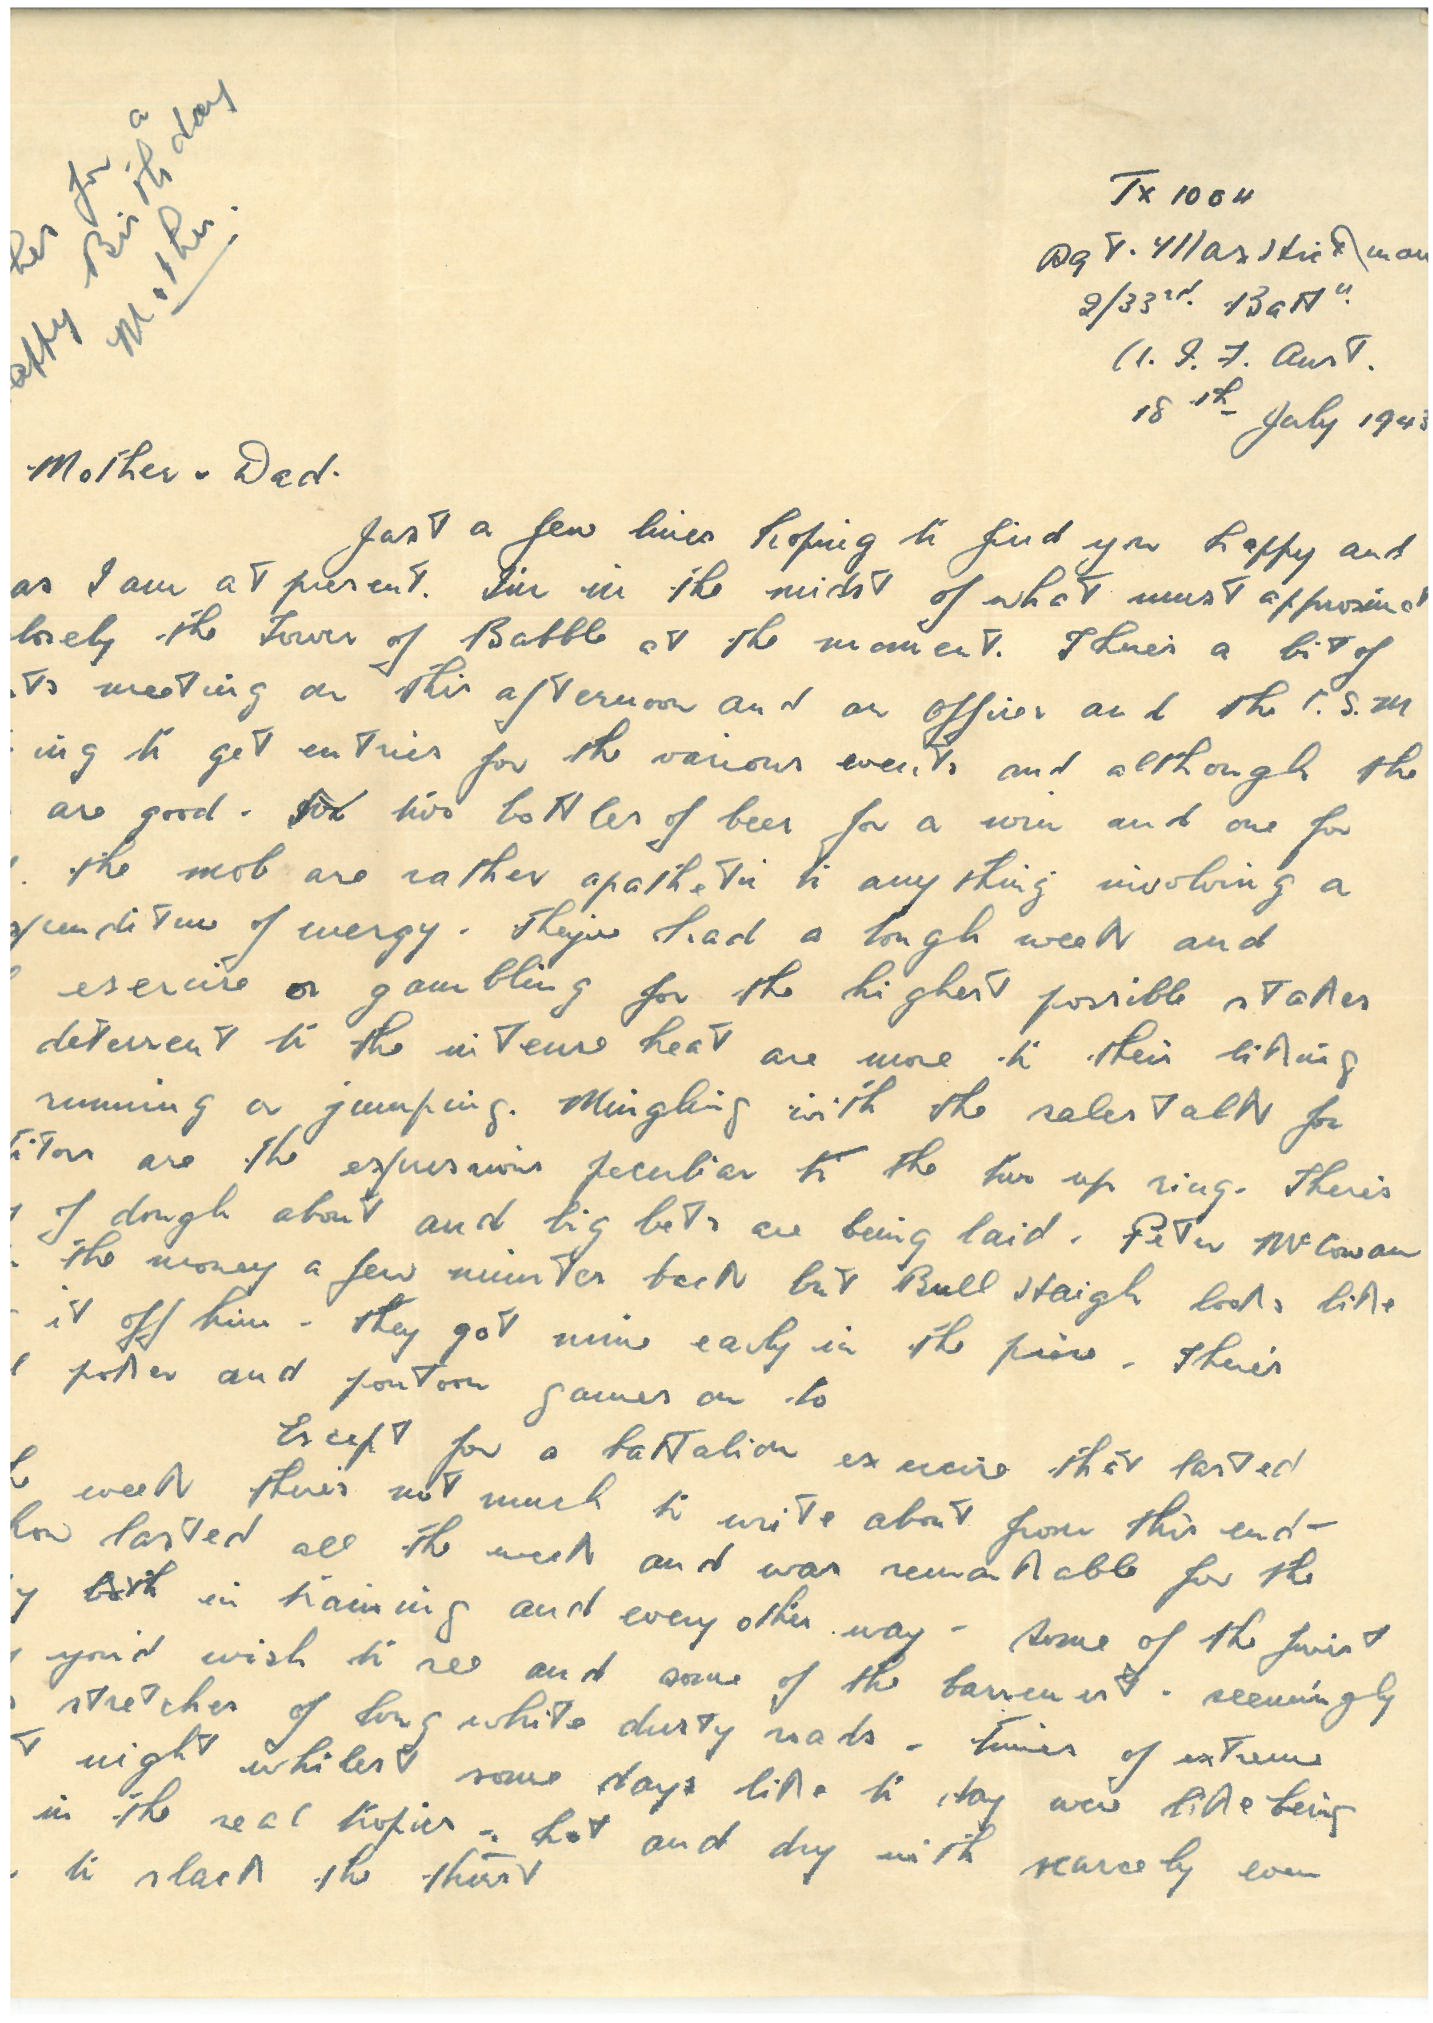 hes for a
appy Birthday
Mother.
Tx 1004
Sgt.
2/33rd. Battn.
A. I. F. Aust.
18th July 1943
Mother & Dad.
Just a few lines hoping to find you happy and
as I am at present. I'm in the midst of what must approximat
losely the Tower of Babble at the moment. There's a bit of
ts meeting on this afternoon and an officer and the C.S.M
ing to get entries for the various events and although the
are good - two bottles of beer for a win and one for
the mob are rather apathetic to anything involving a
xpenditure of energy. They've had a tough week and
exercise or gambling for the highest possible stakes
deterrent to the intense heat are more to their liking
running or jumping. Mingling with the sales talk for
titors are the expressions peculiar to the two up ring. There's
of dough about and big bets are being laid. Peter McCowan
the money a few minutes back but Bull Haigh looks like
it off him - they got mine early in the piece. There's
poker and pontoon games on to
Except for a battalion exercise that lasted
week there's not much to write about from this end -
how lasted all the week and was remarkable for the
y both in training and every other way - some of the
you'd wish to see and some of the barrenest - seemingly
stretches of long white dusty roads - times of extreme
t night whilest some days like to day were like being
in the real tropics - hot and dry with scarcely even
to slack the thirst